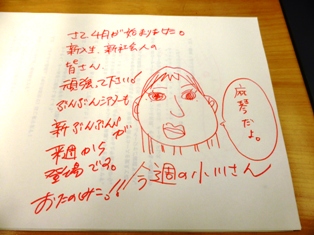 さて4月が始まりました。
新入生、新社会人の
皆さん
頑張って下さい!
ぶんぶんシアターも
新ぶんぶんが
来週から
登場です。
おたのしみに!!
今週の小川さん
麻琴だよ。